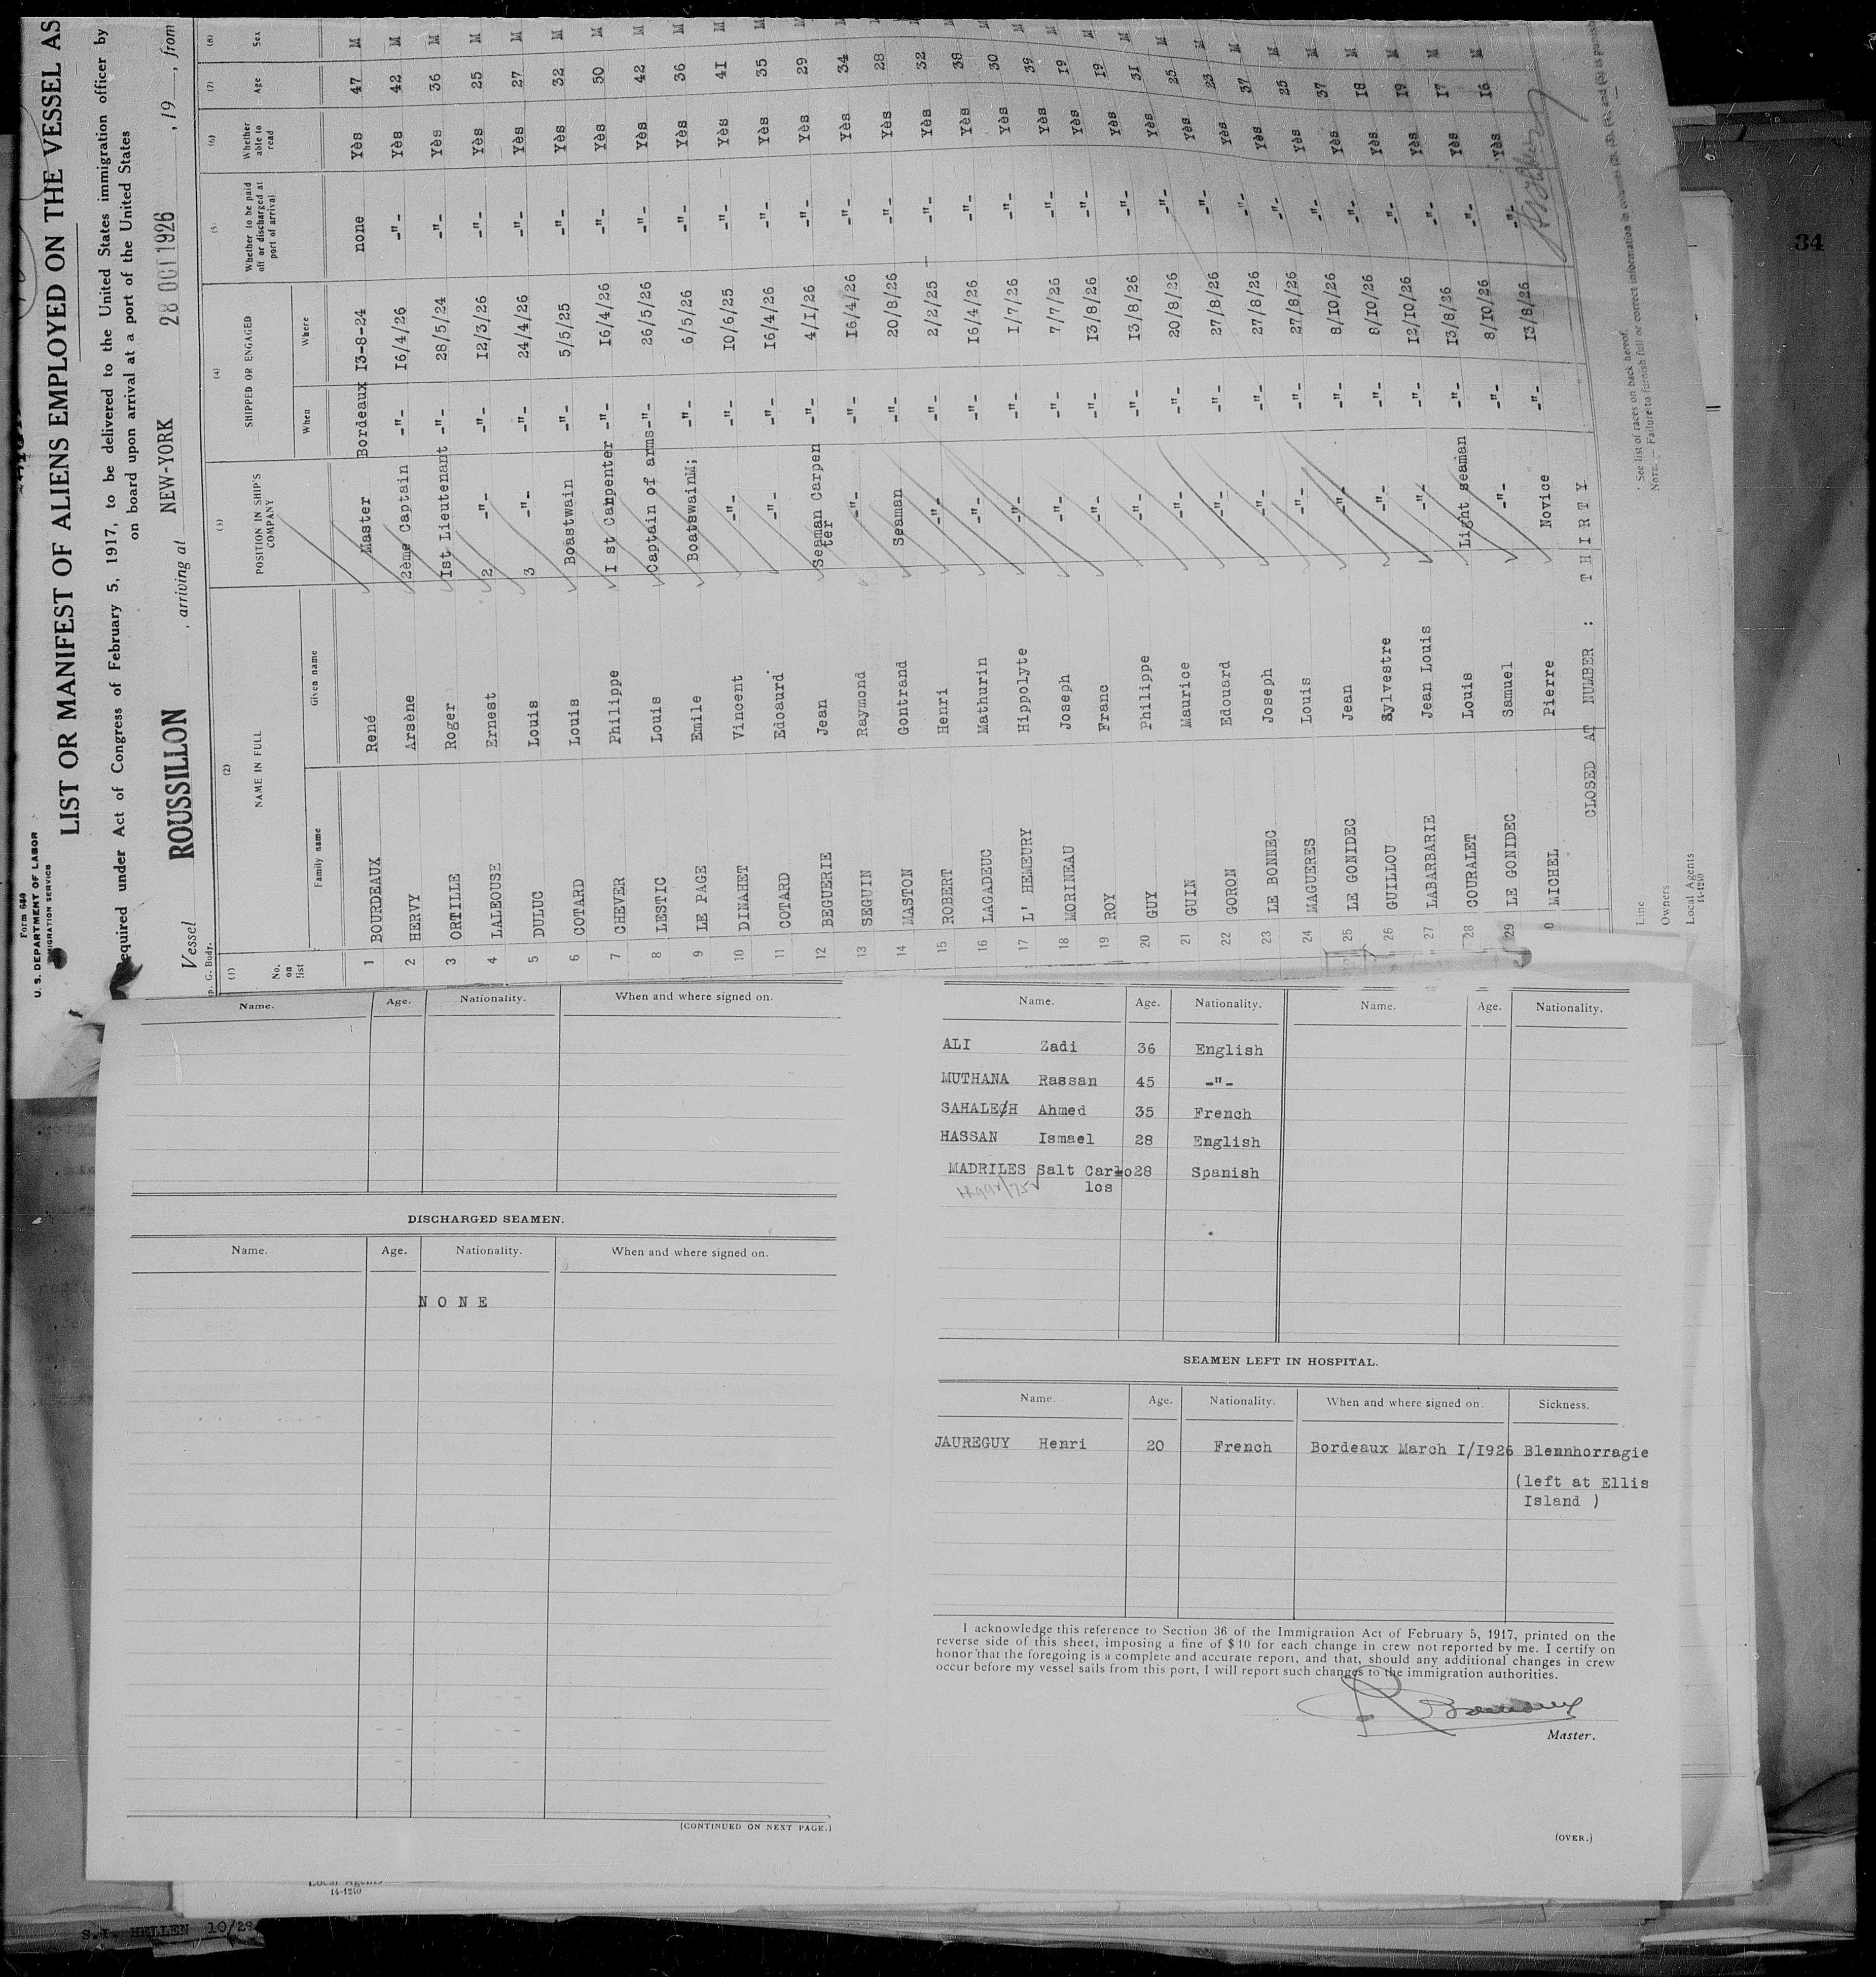 Form 680
U. S. DEPARTMENT OF LABOR
MIGRATION SERVICE
LIST OR MANIFEST OF ALIENS EMPLOYED ON THE VESSEL AS
equired under Act of Congress of February 5, 1917, to be delivered to the United States immigration officer by
on board upon arrival at a port of the United States
Vessel ROUSSILLON , arriving at NEW-YORK 28 OCT 1926 , 19 , from
p. G. Budy.
(1) (2) (3) (4) (5) (6) (7) (8)
No. on list NAME IN FULL POSITION IN SHIP'S COMPANY SHIPPED OR ENGAGED Whether to be paid off or discharged at port of arrival Whether able to read Age Sex
Family name Given name When Where
1 BOURDEAUX René Master Bordeaux 13-8-24 none Yès 47 M
2 HERVY Arsène 2ème Captain -"- 16/4/26 -"- Yès 42 M
3 ORTILLE Roger Ist Lieutenant -"- 28/5/24 -"- Yès 36 M
4 LALEOUSE Ernest 2 -"- -"- 12/3/26 -"- Yès 25 M
5 DULUC Louis 3 -"- -"- 24/4/26 -"- Yès 27 M
6 COTARD Louis Boastwain -"- 5/5/25 -"- Yès 32 M
7 CHEVER Philippe I st Carpenter -"- 16/4/26 -"- Yès 50 M
8 LESTIC Louis Captain of arms -"- 26/5/26 -"- Yès 42 M
9 LE PAGE Emile BoatswainM; -"- 6/5/26 -"- Yès 36 M
10 DINAHET Vincent -"- -"- 10/6/25 -"- Yès 41 M
11 COTARD Edouard -"- -"- 16/4/26 -"- Yès 35 M
12 BEGUERIE Jean Seaman Carpen ter -"- 4/I/26 -"- Yès 29 M
13 SEGUIN Raymond -"- -"- 16/4/26 -"- Yès 34 M
14 MASTON Gontrand Seaman -"- 20/8/26 -"- Yès 28 M
15 ROBERT Henri -"- -"- 2/2/25 -"- Yès 32 M
16 LAGADEUC Mathurin -"- -"- 16/4/26 -"- Yès 38 M
17 L' HEMEURY Hippolyte -"- -"- 1/7/26 -"- Yès 30 M
18 MORINEAU Joseph -"- -"- 7/7/26 -"- Yès 39 M
19 ROY Franc -"- -"- 13/8/26 -"- Yès 19 M
20 GUY Philippe -"- -"- 13/8/26 -"- Yès 19 M
21 GUIN Maurice -"- -"- 20/8/26 -"- Yès 31 M
22 GORON Edouard -"- -"- 27/8/26 -"- Yès 25 M
23 LE BONNEC Joseph -"- -"- 27/8/26 -"- Yès 23 M
24 MAGUERES Louis -"- -"- 27/8/26 -"- Yès 37 M
25 LE GONIDEC Jean -"- -"- 8/10/26 -"- Yès 25 M
26 GUILLOU Sylvestre -"- -"- 8/10/26 -"- Yès 37 M
27 LABARBARIE Jean Louis -"- -"- 12/10/26 -"- Yès 18 M
28 COURALET Louis Light seaman -"- 13/8/26 -"- Yès 19 M
29 LE GONIDEC Samuel -"- -"- 8/10/26 -"- Yès 17 M
0 MICHEL Pierre Novice -"- 13/8/26 -"- Yès 16 M
CLOSED AT NUMBER : THIRTY
Line
Owners
Local Agents
14-1240
* See list of races on back hereof.
NOTE.—Failure to furnish full or correct information in columns (2), (3), (4), and (5) is punish
34
Name. Age. Nationality. When and where signed on.
DISCHARGED SEAMEN.
Name. Age. Nationality. When and where signed on.
N O N E
(CONTINUED ON NEXT PAGE.)
Name. Age. Nationality. Name. Age. Nationality.
ALI Zadi 36 English
MUTHANA Rassan 45 -"-
SAHALECH Ahmed 35 French
HASSAN Ismael 28 English
MADRILES Salt Carlo 28 Spanish
los
SEAMEN LEFT IN HOSPITAL.
Name. Age. Nationality. When and where signed on. Sickness.
JAUREGUY Henri 20 French Bordeaux March I/I926 Blennhorragie
(left at Ellis
Island )
I acknowledge this reference to Section 36 of the Immigration Act of February 5, 1917, printed on the
reverse side of this sheet, imposing a fine of $10 for each change in crew not reported by me. I certify on
honor that the foregoing is a complete and accurate report, and that, should any additional changes in crew
occur before my vessel sails from this port, I will report such changes to the immigration authorities.
Master.
(OVER.)
Local Agents
14-1240
S.I. HELLEN 10/29